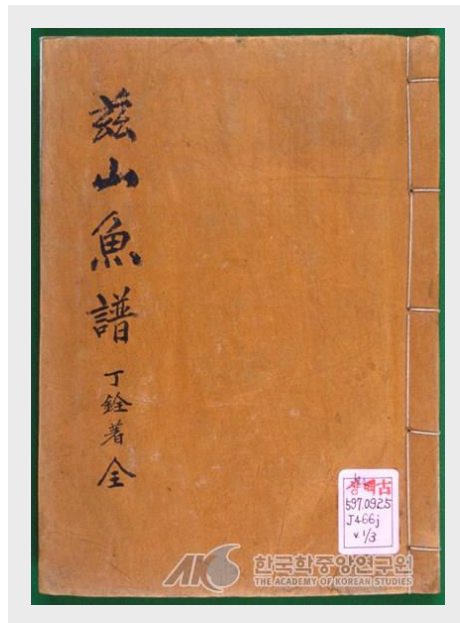 茲山魚譜
丁銓著 全
장빼古
597.0925
J466j
v.1/3
AKS 한국학중앙연구원
THE ACADEMY OF KOREAN STUDIES